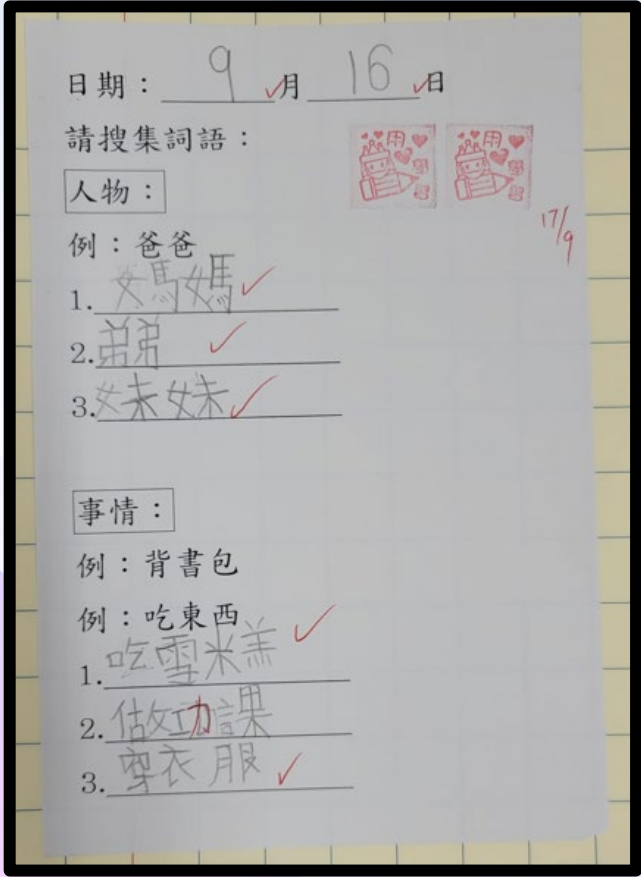 日期：9月16日
請搜集詞語：
用心學習 用心學習
17/9
人物：
例：爸爸
1. 媽媽
2. 弟弟
3. 妹妹
事情：
例：背書包
例：吃東西
1. 吃雪米羔
2. 做功課
3. 穿衣服